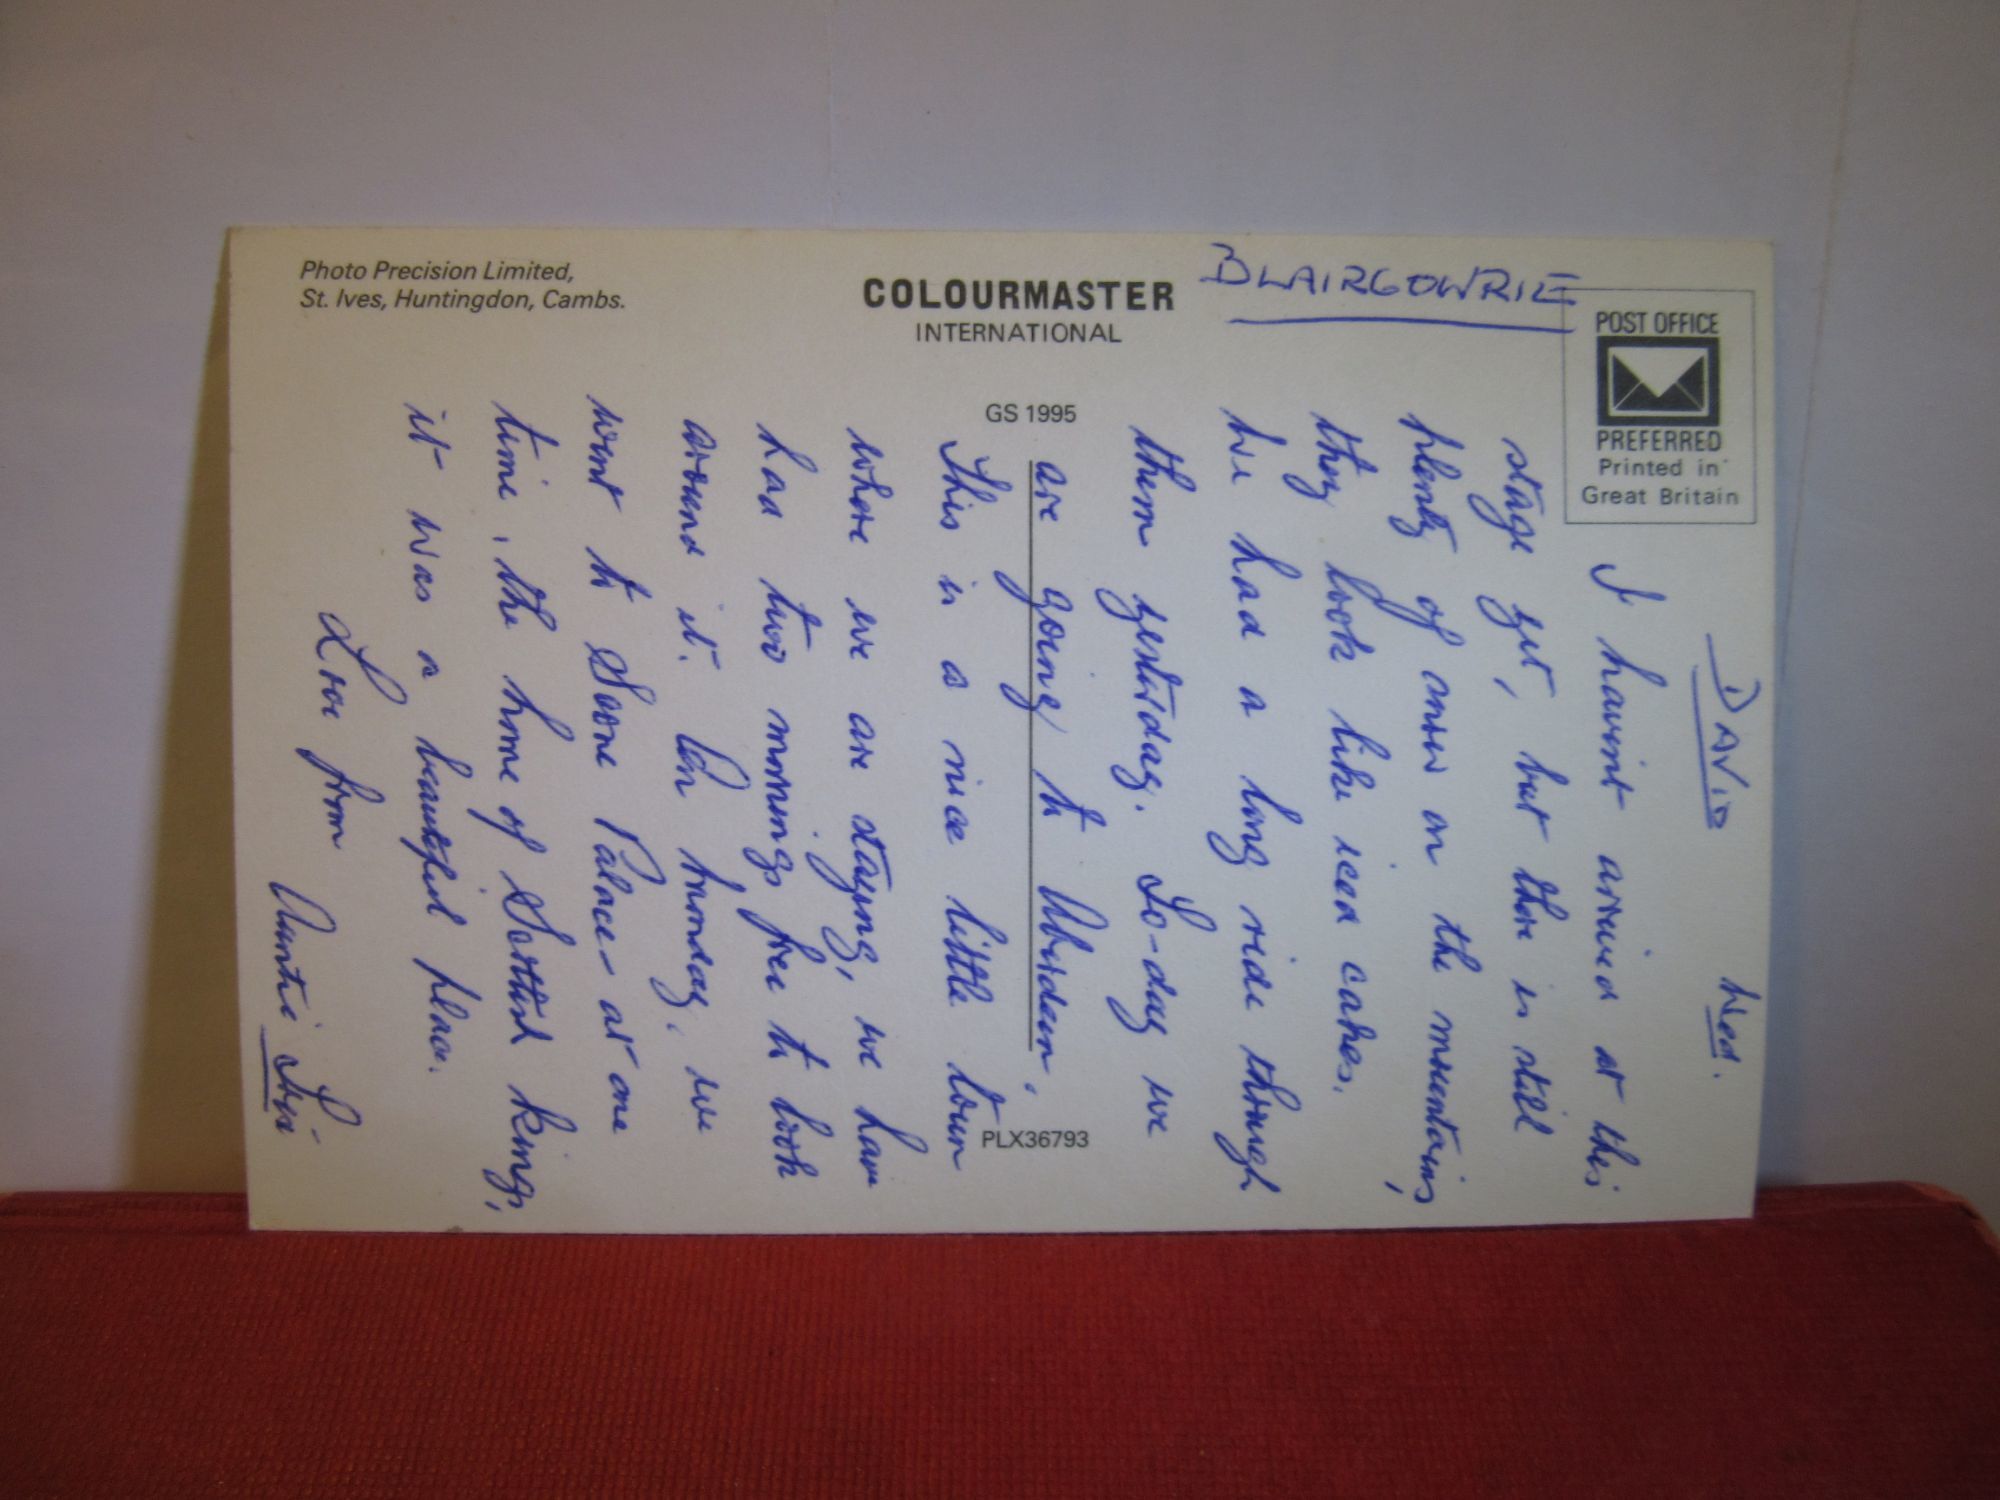 Photo Precision Limited,
St. Ives, Huntingdon, Cambs.
COLOURMASTER
INTERNATIONAL
BLAIRGOWRIE
POST OFFICE
PREFERRED
Printed in
Great Britain
GS 1995
PLX36793
DAVID
Wed.
I havint arrived at this
stage yet, but there is still
plenty of snow on the mountains,
they look like iced cakes.
We had a long ride through
them yesterday. To-day we
are going to Aberdeen.
This is a nice little town
where we are staying, we have
had two mornings free to look
around it. On Monday, we
went to Scone Palace - at one
time, the home of Scottish kings,
it was a beautiful place.
Love from
Auntie